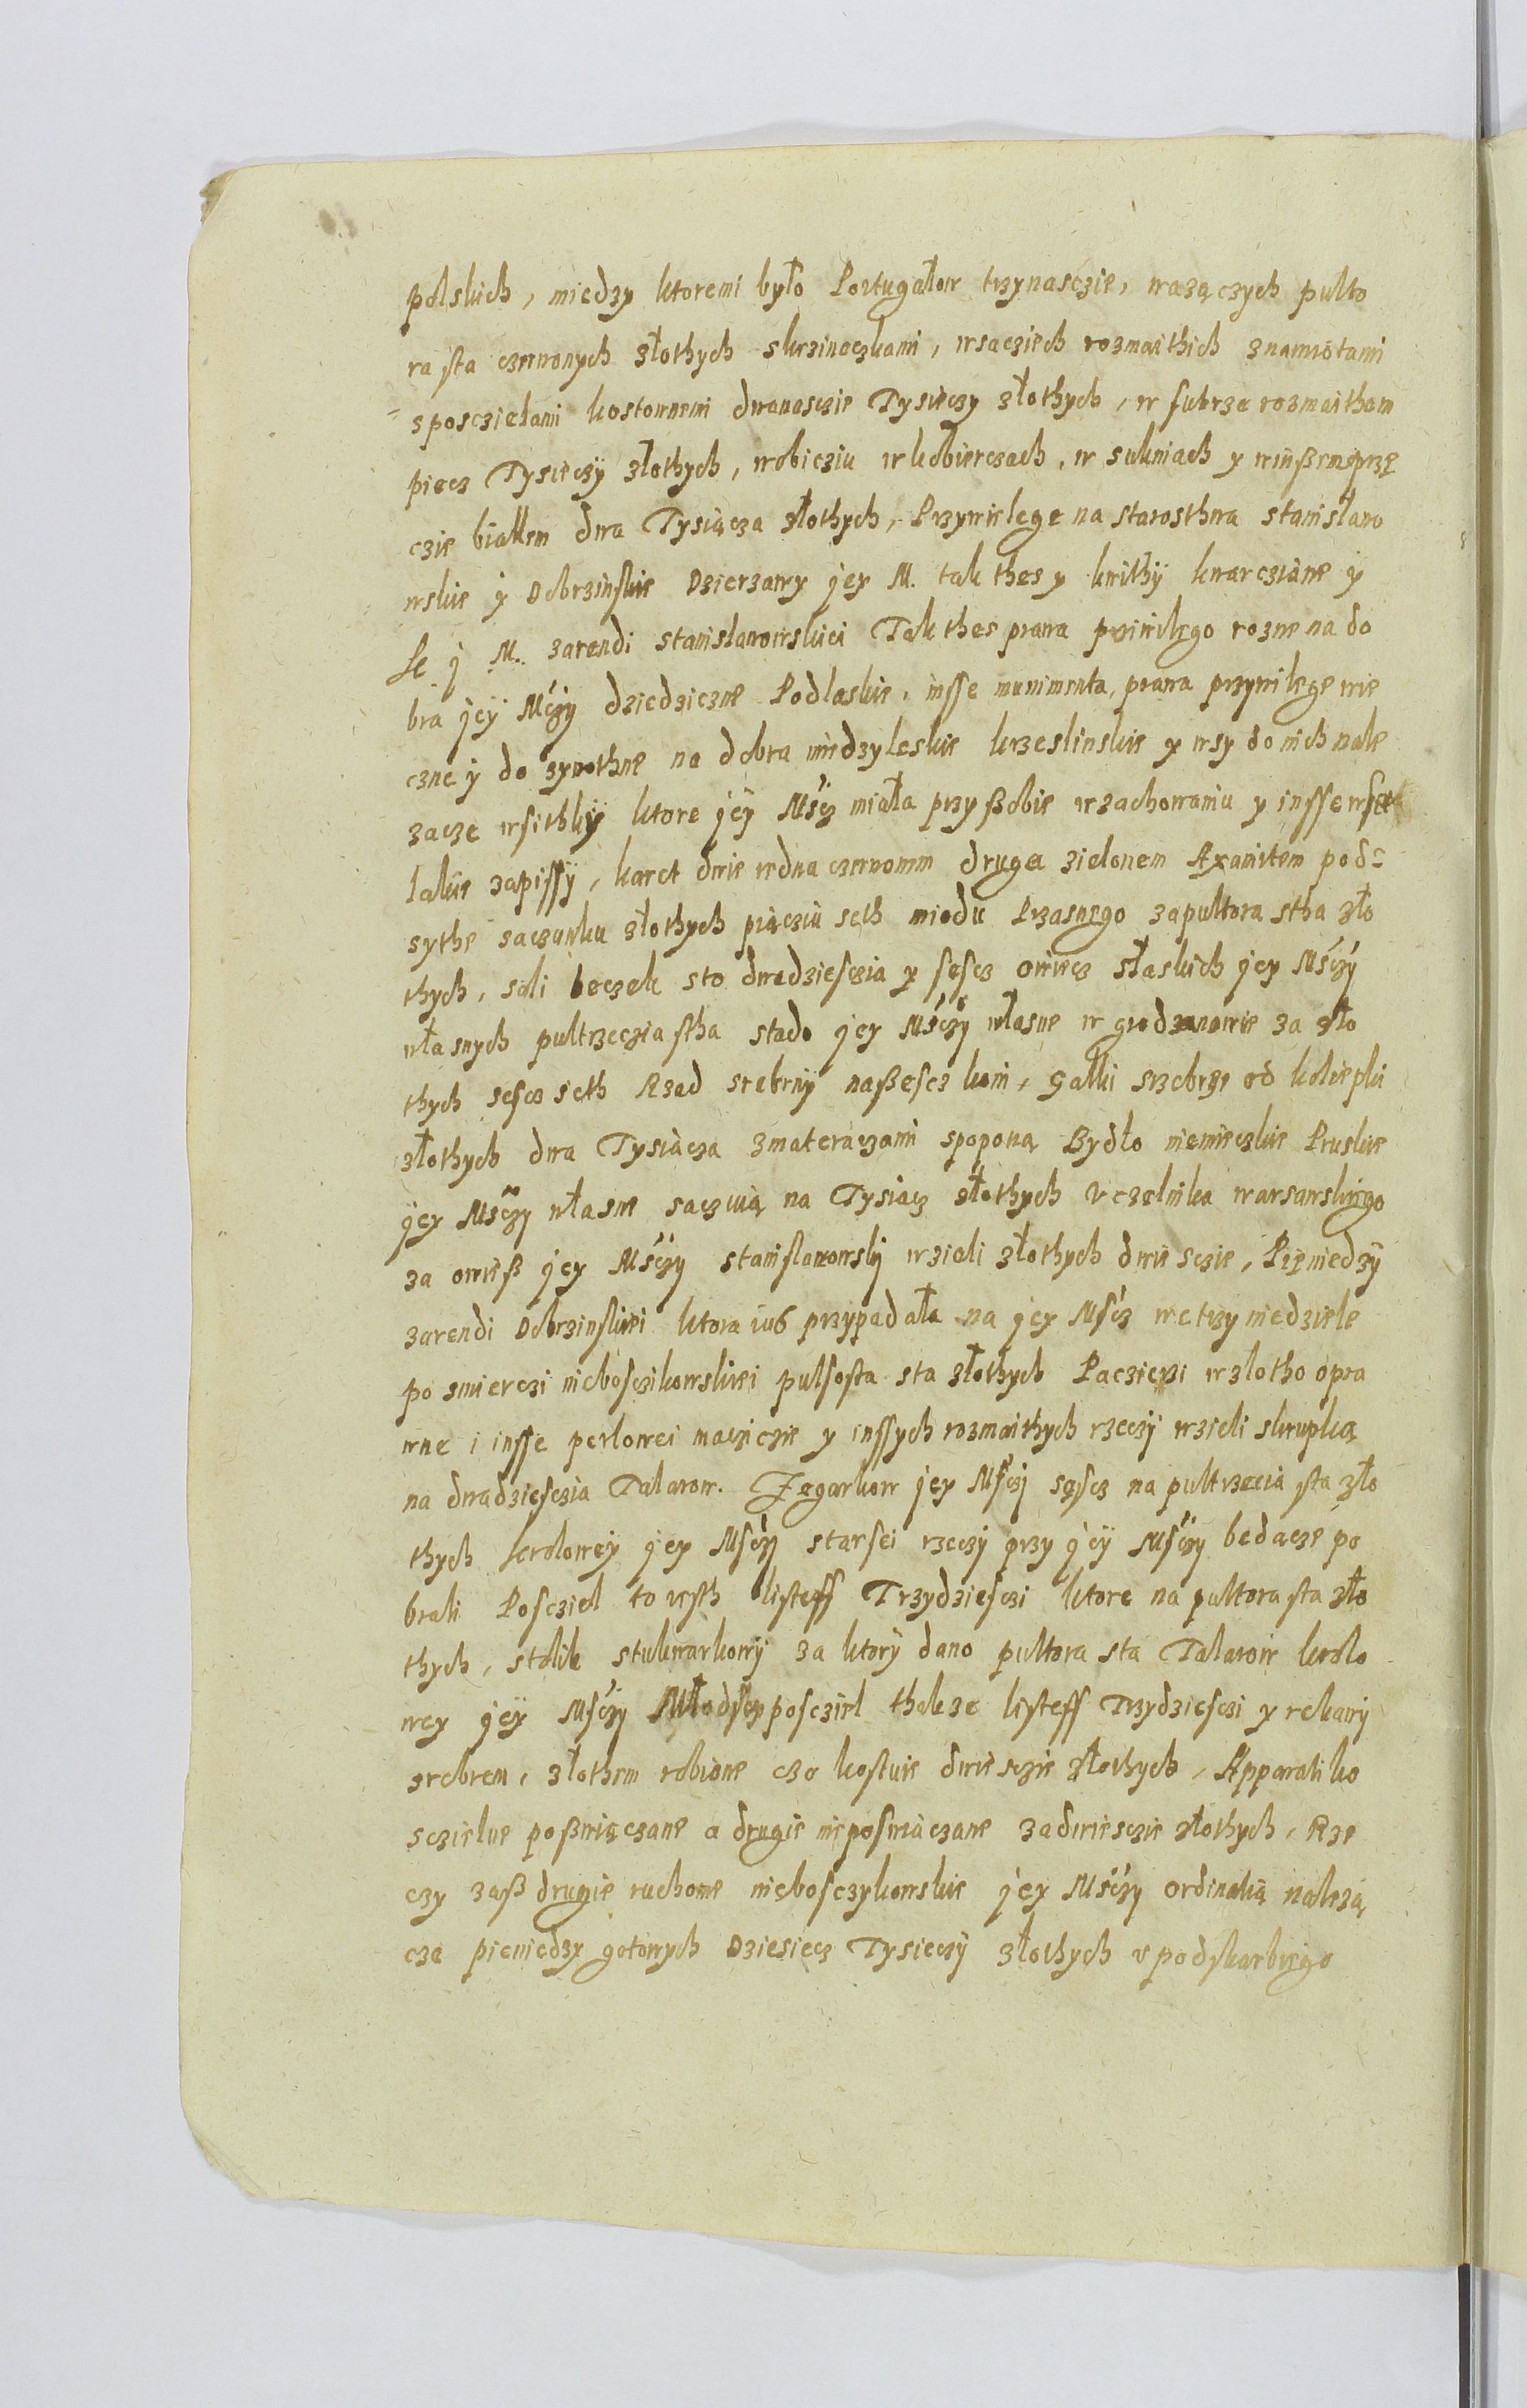 polskich, miedzy ktoremi było Portugałow trzynasczie, wazączych pulto
ra sta czerwonych złothych skrzineczkami, wsacziech rozmaithich znamiotami
sposczielami kostownemi dwanasczie Tysieczy złothych, w futrze rozmaithem
piecz Tysieczÿ złothych, wobicziu w kobierczach, w sukniach y winßem sprzę
czie białlem dwa Tysiącza złothych, Przywilege na starosthwa stanisławo
wskie ÿ Dobrzinskie Dzierzawy jey M. tak thes y kwithÿ kwarcziane ÿ
Je j M. zarendi stanislawowskiei Tak thes prawa priwilego rozne na do
bra jeÿ Mczy dziedziczne Podlaskie, insse munimenta, prawa przywilege wie
czne ÿ do zywothne na dobra miedzyleskie krzeslinskie y wsy do nich nale
zacze wsithkÿ ktore jeÿ Mścz miała przy ßobie w zachowaniu y insse wsel
lakie zapissÿ, karet dwie iedna czerwonem druga zielonem Axamitem pod
sythe saczunku złothych piącziu seth miodu Przasnego zapultora stha zło
thych, soli beczek sto dwadziesczia y sescz owiecz słaskich jey Mśczÿ
własnych pultrzeczia stha stado jey Mśczÿ własne w grodzanowie za zło
thych sescz seth Rzad srebrnÿ naßescz koni, Gałki srzebrze od kolepki
złothych dwa Tysiącza zmateraczami spoponą Bydło niemieczkie Pruskie
jey Msczy własne saczuią na Tysiacz złothych v czelnika warsawskiego
za owieß jey Mśczy stanislawowskÿ wzieli złothych dwiesczie, Pięniedzÿ
zarendi Dobrzinskiei ktora iuß przypadała na jey Mścz wetrzy niedziele
po smierczi nieboszczikowskiei pulsosta sta złothych Paczierzi wzlotho opra
wne i insse perlowei macziczie y inssych rozmaithych rzeczÿ wzieli skrupką
na dwadziesczia Talarow. Zegarkow jey Msczÿ sęscz na pultrzecia sta zło
thych krolowey jey Mśczÿ starsei rzeczÿ przy jeÿ Msczy bedacze po
brali Posciel to iesth listeff Trzydziesczi ktore na pultora sta zło
thych, stolik stukwarkowÿ za ktorÿ dano pultora sta Talarow krolo
wey jeÿ Msczÿ Młodsey posciel thakze listeff Trzydziesczi y rekawÿ
srebrem, złothem robione czo kostuie dwiesczie złothych, Apparati ko
scielne poßwięczane a drugie nieposwiaczane zadwiesczie złothych, Rze
czy zaß drugie ruchome nieboszczykowskie jey Mśczy ordinatią nalezą
cze pieniedzy gotowych Dziesiecz Tysieczÿ złothych v podskarbiego